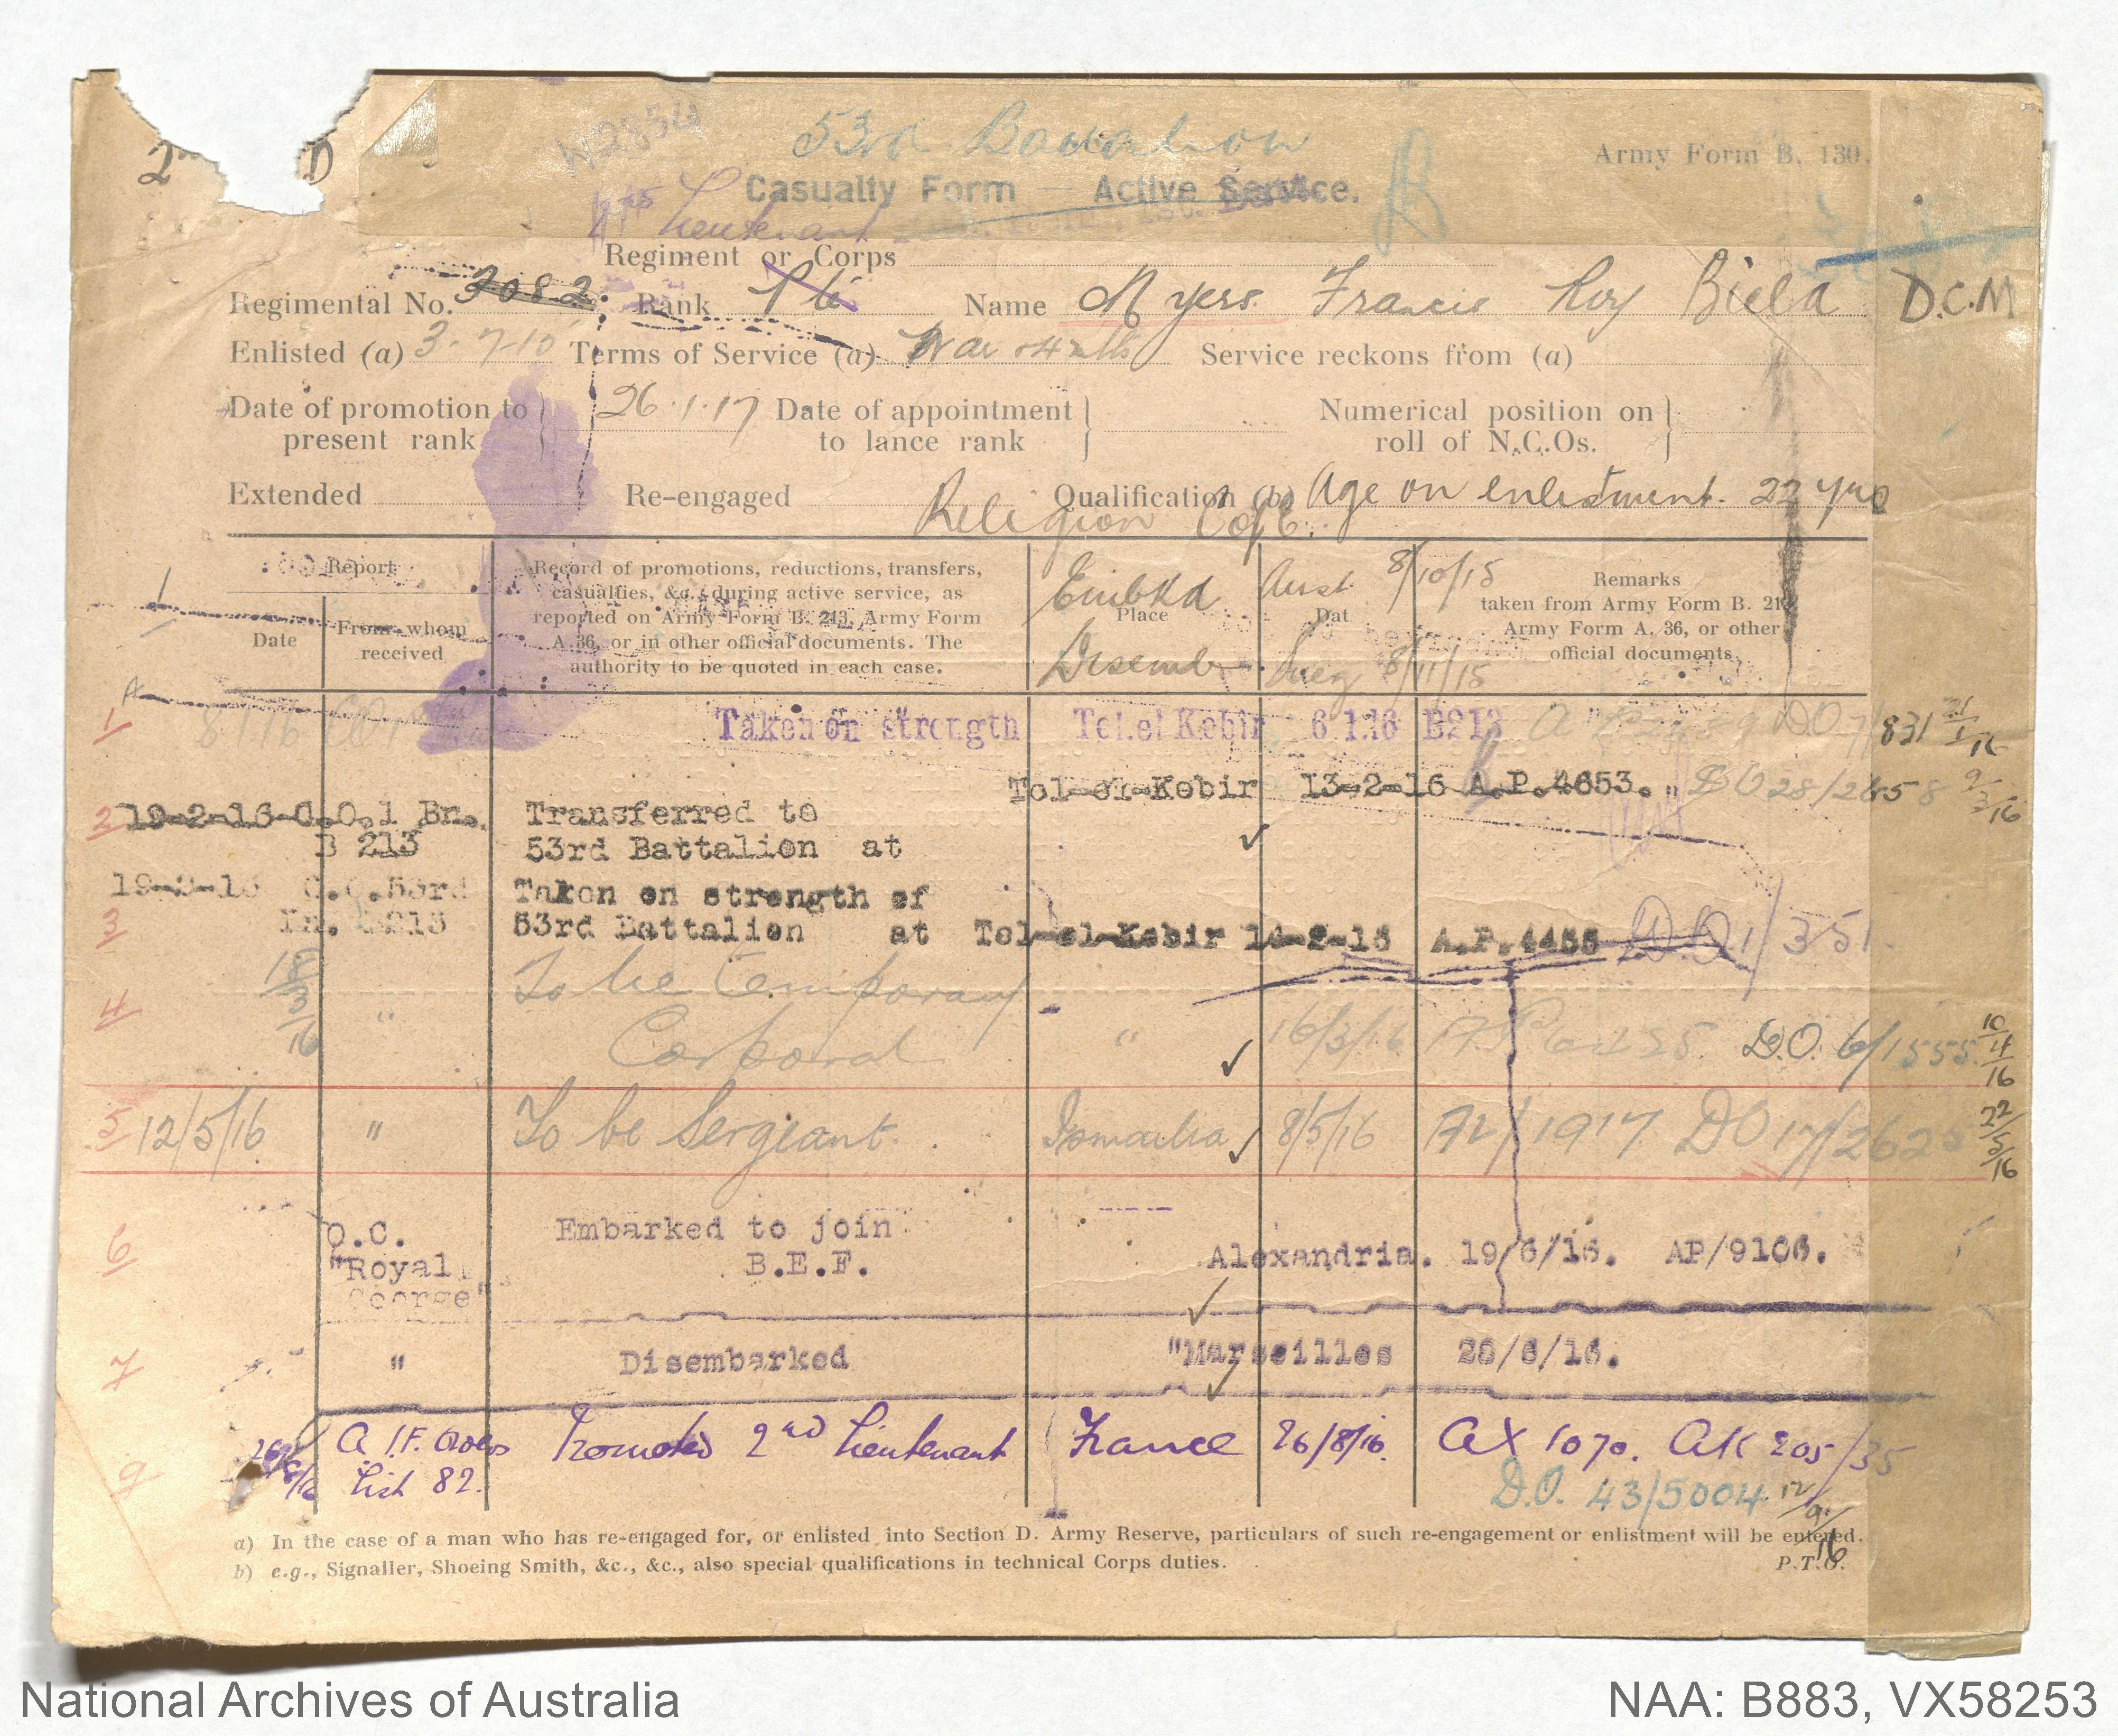 53rd Battalion
Army Form B. 130.
Casualty Form — Active Service.
Lieutenant
Regiment or Corps
Regimental No. 3082 Rank Pte Name Myers Francis Roy Biela D.C.M
Enlisted (a) 3.7.15 Terms of Service (a) War Service reckons from (a)
Date of promotion to present rank 26.1.17 Date of appointment to lance rank Numerical position on roll of N.C.Os.
Extended Re-engaged Qualification (b) Age on enlistment. 22 yrs
Religion C of E.
Report
Date
From whom received
Record of promotions, reductions, transfers,
casualties, &c., during active service, as
reported on Army Form B. 213, Army Form
A. 36, or in other official documents. The
authority to be quoted in each case.
Embkd Aust 8/10/15
Place Dat
Disemb. Suez 8/11/15
Remarks
taken from Army Form B. 21
Army Form A. 36, or other
official documents.
1 Taken on strength Tel el Kebir 6 1.16 B213 831
Tel-el-Kebir 13-2-16 A.P.4653. DO 28/2658 9/3/16
2 19-2-16 C.O.1 Bn. Transferred to
B 213 53rd Battalion at
C.O.53rd Taken on strength of
3 53rd Battalion at Tel-el-Kebir 14-2-16 A.P.4455 D.O 1/351
18/3/16 To be Temporary
4 " Corporal " 16/3/16 D.O. 6/1555 10/4/16
5 12/5/16 " To be Sergeant. Ismailia 8/5/16 A2/1917 DO 17/2625 22/5/16
6 O.C. Embarked to join
"Royal B.E.F. Alexandria. 19/6/16. AP/9106.
George"
7 " Disembarked "Marseilles 28/6/16.
9 26/8/16 A.I.F. Orders Promoted 2nd Lieutenant France 26/8/16. AX 1070. AK 205/35
List 82. D.O. 43/5004 12/9/16
a) In the case of a man who has re-engaged for, or enlisted into Section D. Army Reserve, particulars of such re-engagement or enlistment will be entered.
b) e.g., Signaller, Shoeing Smith, &c., &c., also special qualifications in technical Corps duties. P.T.O.
National Archives of Australia NAA: B883, VX58253